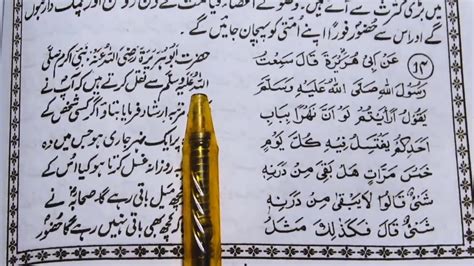 میں بڑی کثرت سے آئے ہیں۔ وضو کے اعضاء قیامت کے دن روشن اور چمک دار ہوں
گے اور اس سے حضور فوراً اپنے اُمتی کو پہچان جائیں گے
۱۴ عَنْ اَبِیْ هُرَیْرَةَ قَالَ سَمِعْتُ
رَسُوْلَ اللّٰهِ صَلَّی اللّٰهُ عَلَیْهِ وَسَلَّمَ
یَقُوْلُ اَرَاَیْتُمْ لَوْ اَنَّ نَهْرًا بِبَابِ
اَحَدِکُمْ یَغْتَسِلُ فِیْهِ کُلَّ یَوْمٍ
خَمْسَ مَرَّاتٍ هَلْ بَقِیَ مِنْ دَرَنِهٖ
شَیْئٌ قَالُوْا لَا یَبْقٰی مِنْ دَرَنِهٖ
شَیْئٌ قَالَ فَکَذٰلِكَ مَثَلُ
حضرت ابو ہریرۃ رضی اللہ عنہ نبی اکرم صلی
اللہ علیہ وسلم سے نقل کرتے ہیں کہ آپ نے
ارشاد فرمایا بتاؤ اگر کسی شخص کے
پر ایک نہر جاری ہو جس میں وہ
روزانہ غسل کرتا ہو کیا اس کے
میل باقی رہے گا صحابہؓ نے
کچھ بھی باقی نہیں رہے گا حضورؐ